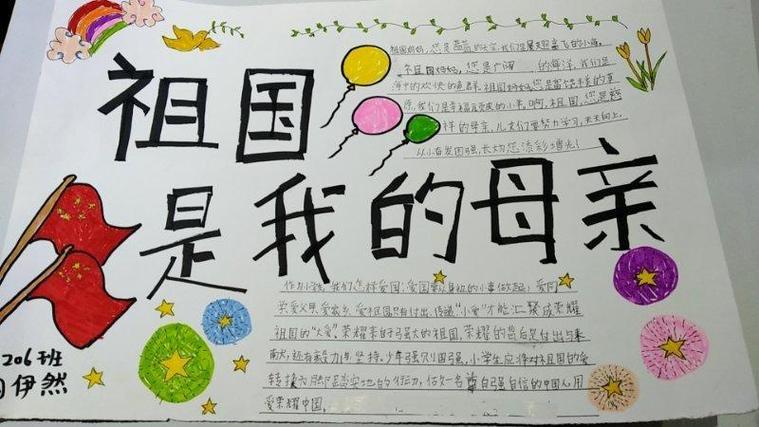 祖国
是我的母亲
祖国妈妈,您是蓝蓝的天空,我们是展翅高飞的小鸟。
祖国妈妈,您是广阔的海洋,我们是
海中的欢快的鱼群。祖国妈妈您是
原,我们是幸福的小草。啊,祖国,您是慈
祥的母亲,儿女们要努力学习,天天向上。
从小奋发图强,长大为您添彩增光!
作为小学生,我们怎样爱国:爱国要从身边的小事做起:爱同
关爱父母、爱家乡、爱校园只有付出,传递“小爱”才能汇聚成荣耀
祖国的“大爱”。荣耀来自强大的祖国,荣耀的背后是付出与
耐力与坚持。少年强则国强,小学生应将对祖国的爱
转换为脚踏实地的行动,做好一名自尊自强自信的中国人,用
爱荣耀中国。
206班
伊然